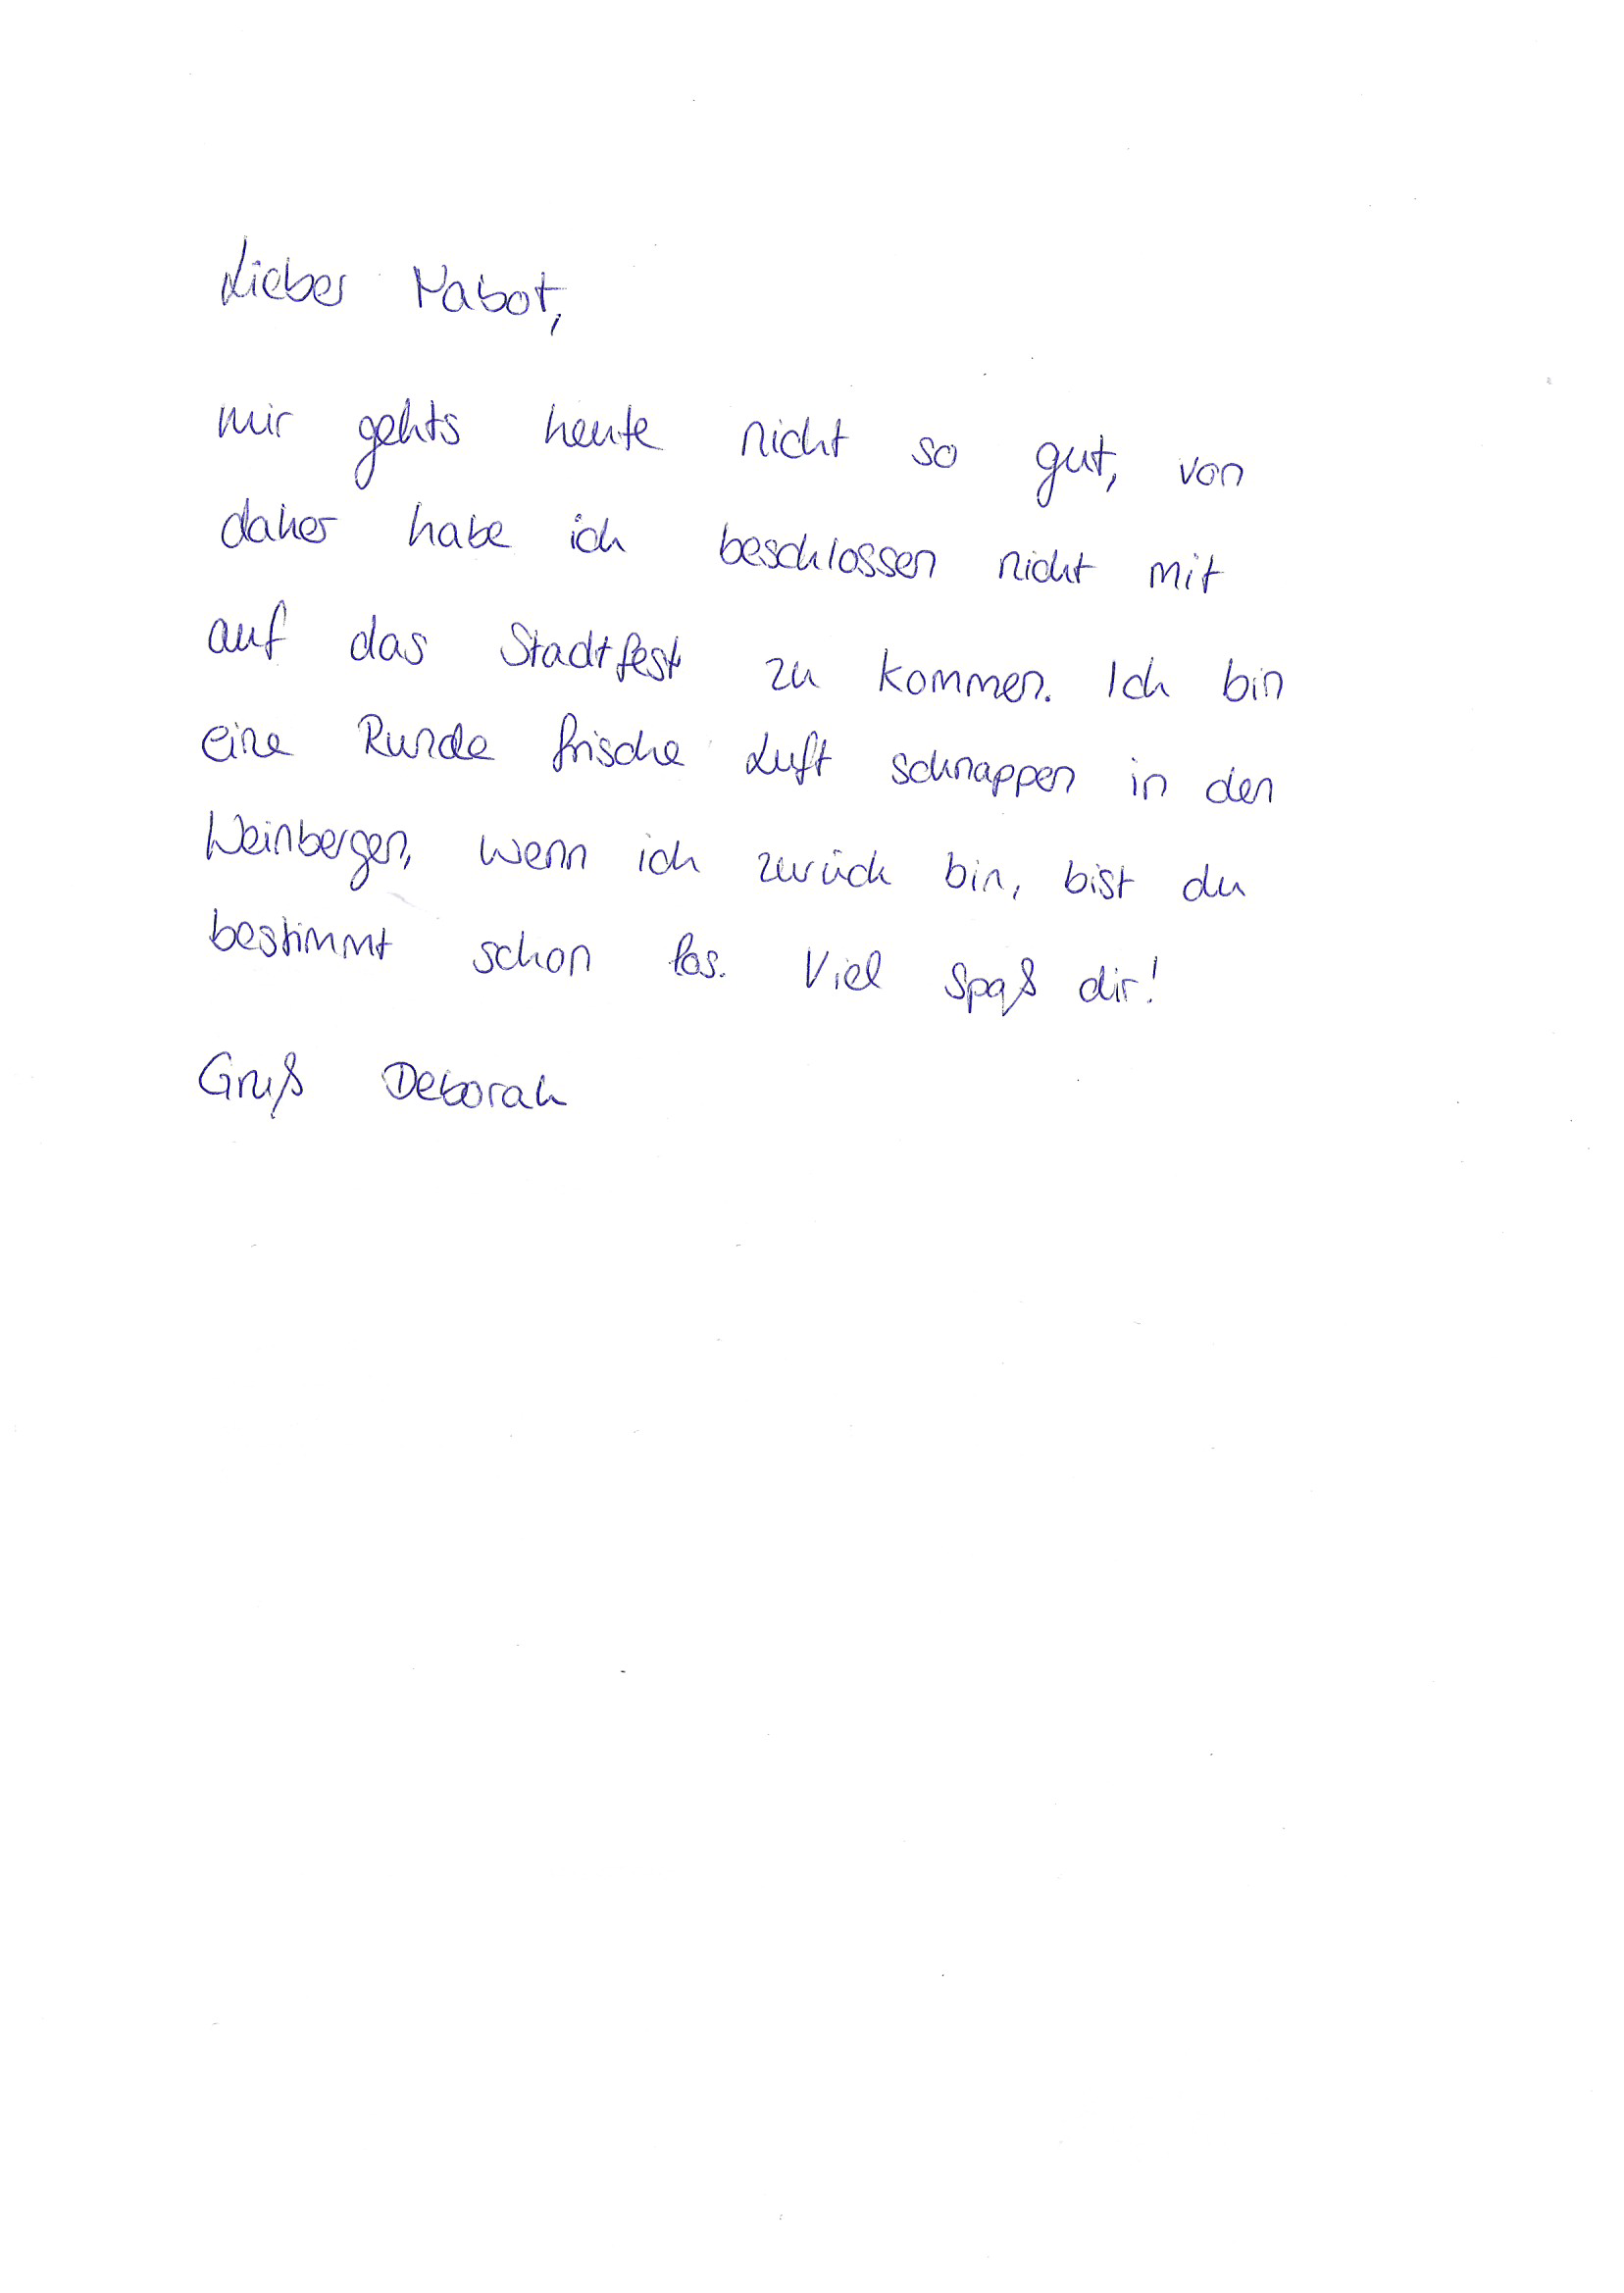 Lieber Nabot,
mir gehts heute nicht so gut, von
daher habe ich beschlossen nicht mit
auf das Stadtfest zu kommen. Ich bin
eine Runde frische Luft schnappen in den
Weinbergen, wenn ich zurück bin, bist du
bestimmt schon los. Viel Spaß dir!
Gruß Deborah